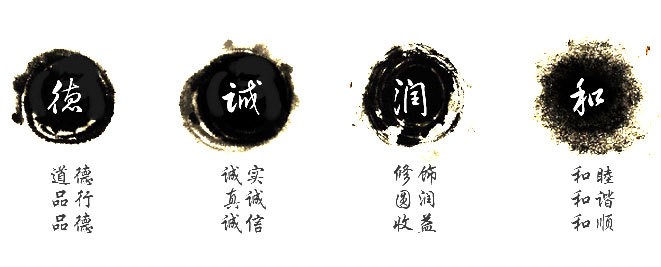 德
道德
品行
品德
诚
诚实
真诚
诚信
润
修饰
圆润
收益
和
和睦
和谐
和顺